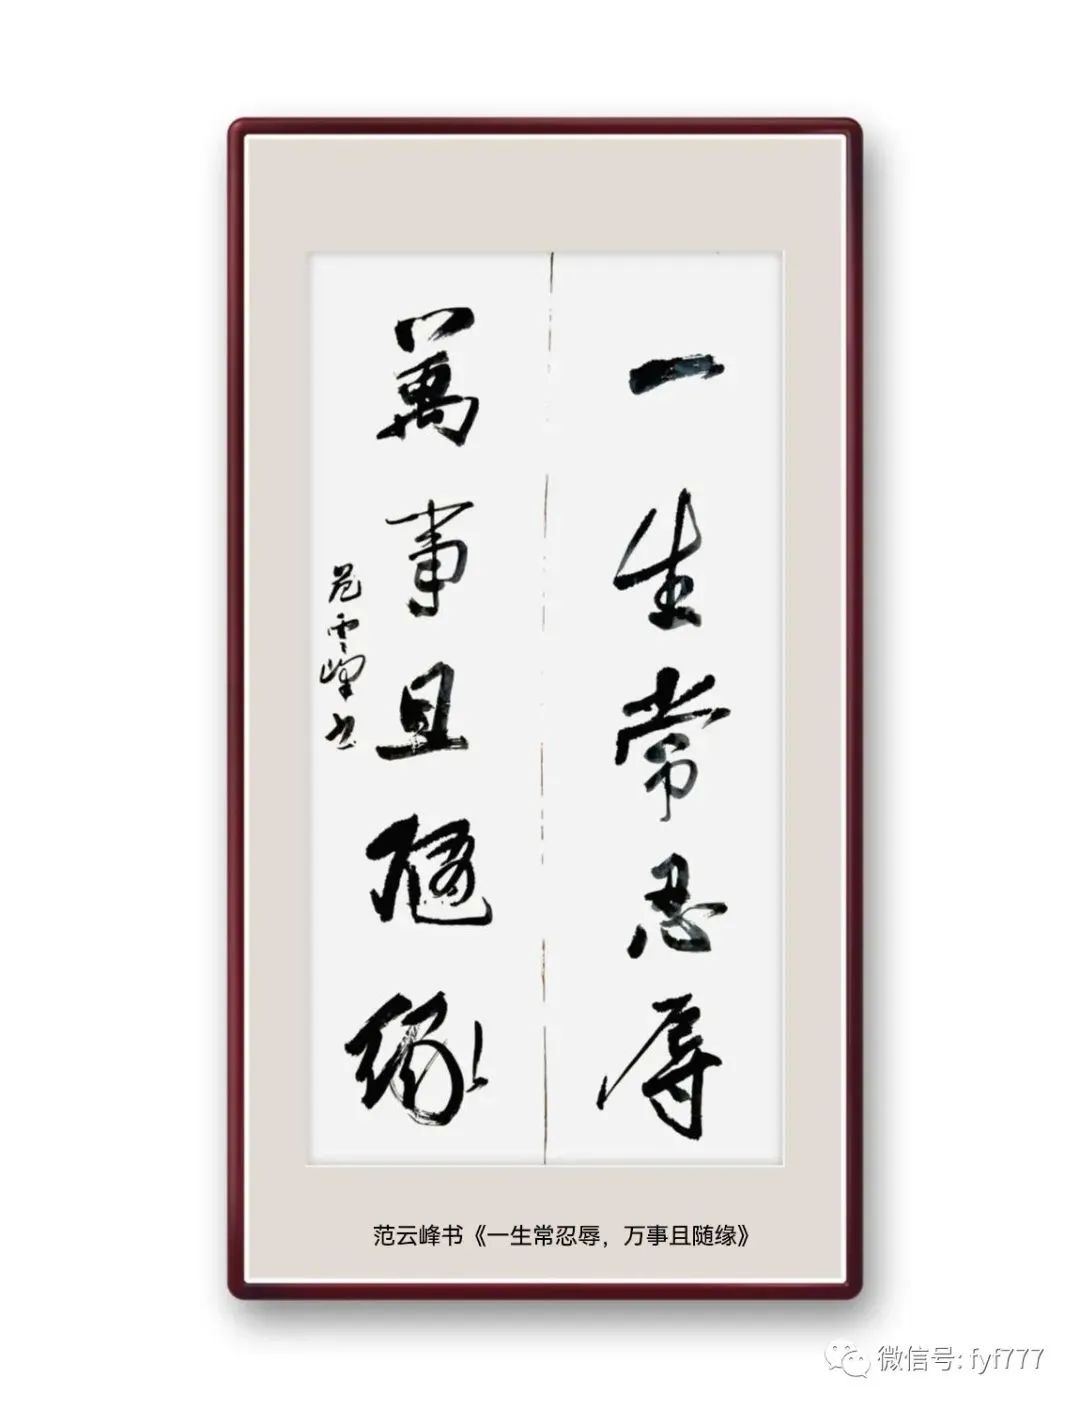 一生常忍辱
萬事且隨緣
范雲峰书
范云峰书《一生常忍辱，万事且随缘》
微信号: fyf777